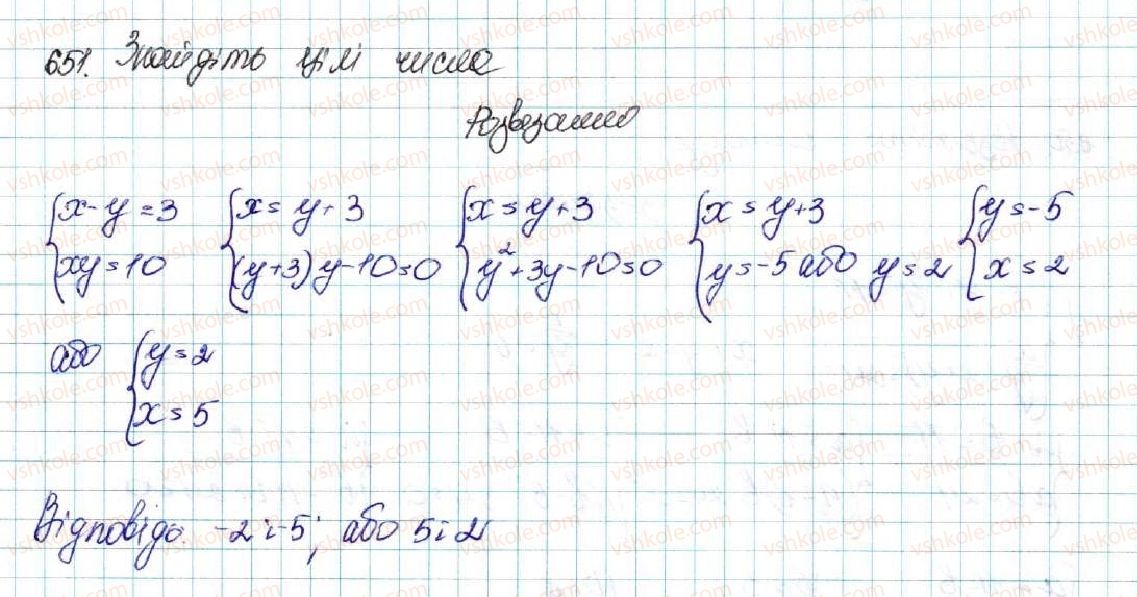 651. Знайдіть цілі числа
Розвязання
{x-y=3 {x=y+3 {x=y+3 {x=y+3 {y=-5
{xy=10 {(y+3)y-10=0 {y²+3y-10=0 {y=-5 або y=2 {x=2
або {y=2
{x=5
Відповідь: -2 і -5; або 5 і 2